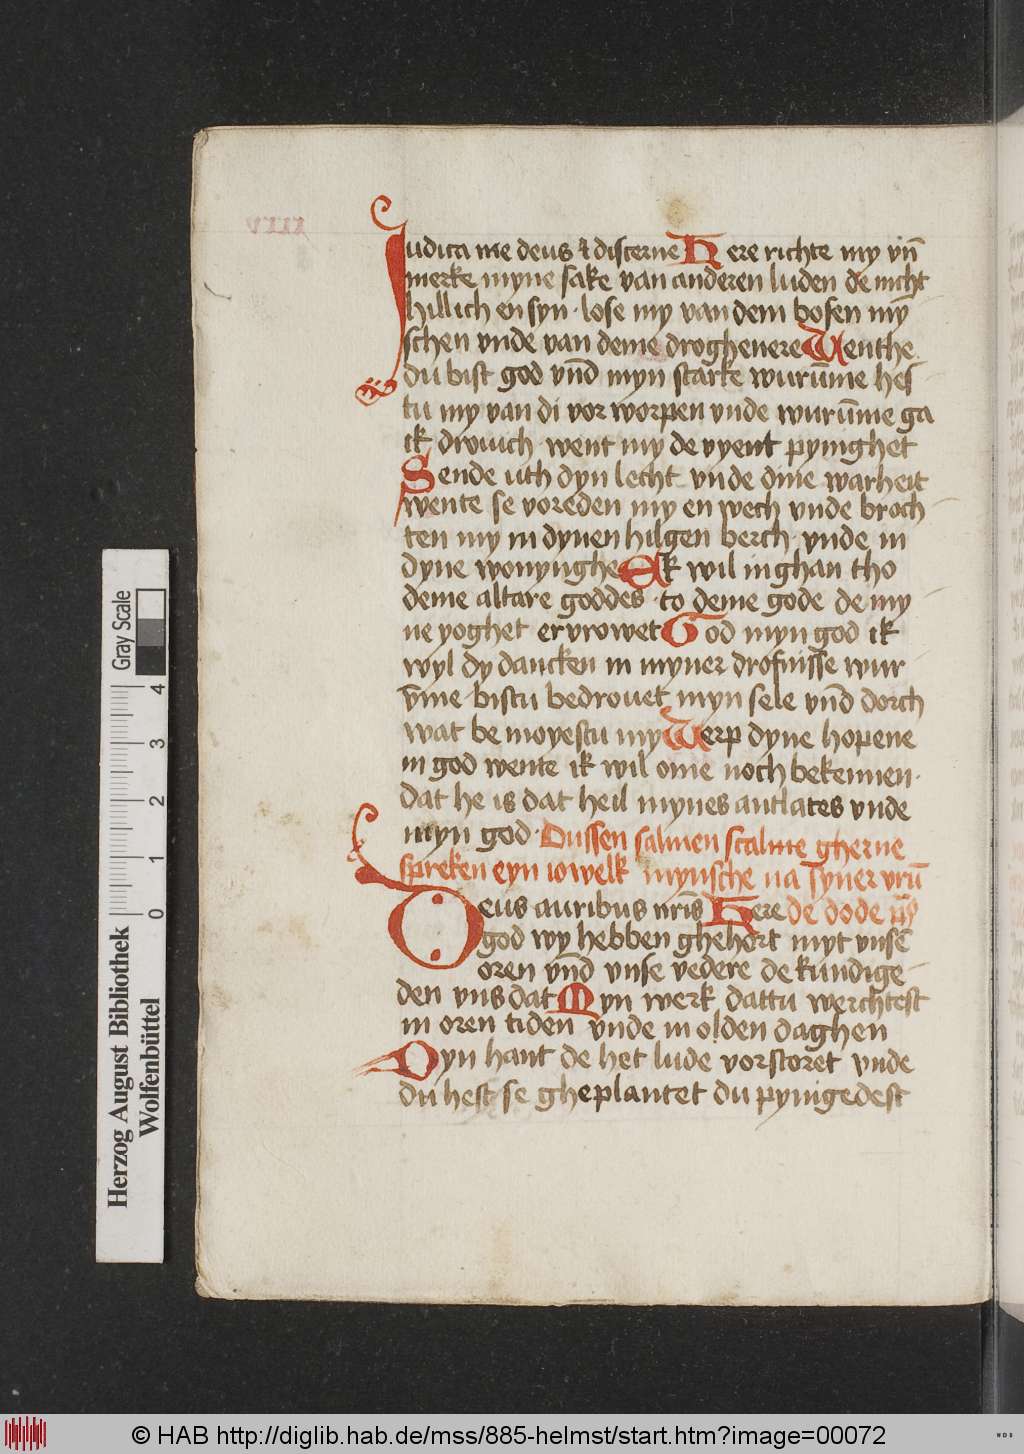 Judica me deus & discerne Here richte my vn̄
merke myne sake van anderen luden de nicht
hillich en syn · lose my van dem bosen my̅
schen vnde van deme droghenere Wenthe
du bist god vnd̄ myn starke wuru̅me hes
tu my van di vor worpen vnde wuru̅me ga
ik drouich · went my de vyent pynighet
Sende uth dyn lecht vnde dine warheit
wente se voreden my en wech vnde broch
ten my in dynen hilgen berch · vnde in
dyne wonynghe Ik wil inghan tho
deme altare goddes · to deme gode de my
ne yoghet ervrowet God myn god ik
wyl dy dancken in myner drofnisse wur
v̅me bistu bedrouet myn sele vnd̄ dorch
wat be moyestu my Werp dyne hopene
in god wente ik wil ome noch bekennen ·
dat he is dat heil mynes antlates vnde
myn god · Dussen salmen scalme gherne
spreken eyn iowelk mynsche na syner vru̅
Deus auribus nr̄is Here de dode
god wy hebben ghehort myt vnse̅
oren vnd̄ vnse vedere de kundige
den vns dat Dyn werk dattu werchtest
in oren tiden vnde in olden daghen
Dyn hant de het lude vorstoret vnde
du hest se gheplantet du pynigedest
Gray Scale
4 3 2 1 0
Herzog August Bibliothek
Wolfenbüttel
© HAB http://diglib.hab.de/mss/885-helmst/start.htm?image=00072